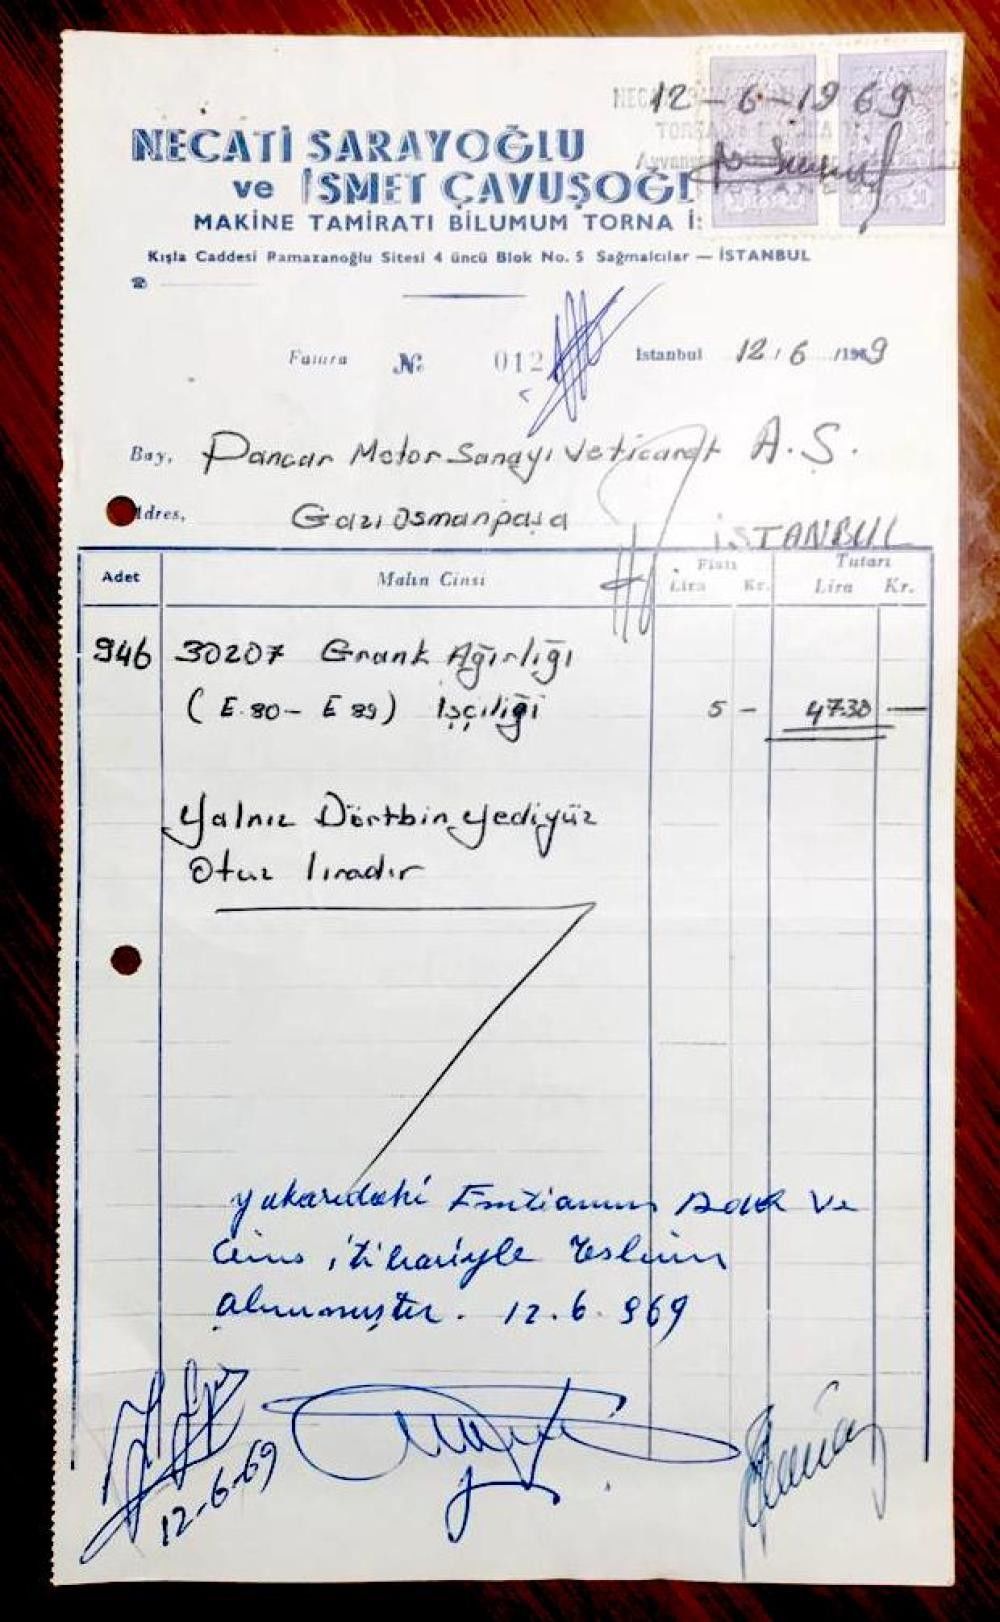 12-6-1969
NECATİ SARAYOĞLU
ve İSMET ÇAVUŞOĞL
MAKİNE TAMİRATI BİLUMUM TORNA İ:
Kışla Caddesi Ramazanoğlu Sitesi 4 üncü Blok No. 5 Sağmalcılar — İSTANBUL
Fatura № 012 İstanbul 12/6/1969
Bay, Pancar Motor Sanayi Ve ticaret A.Ş.
Adres, Gaziosmanpaşa İSTANBUL
Adet Malın Cinsi Fiatı Lira Kr. Tutarı Lira Kr.
946 30207 Grank Ağırlığı
(E.80-E 89) İşçiliği 5 - 4730 —
Yalnız Dörtbin yediyüz
Otuz liradır
yukarıdaki Emtianın Adet Ve
Cins itibariyle teslim
alınmıştır. 12.6.969
12-6-69